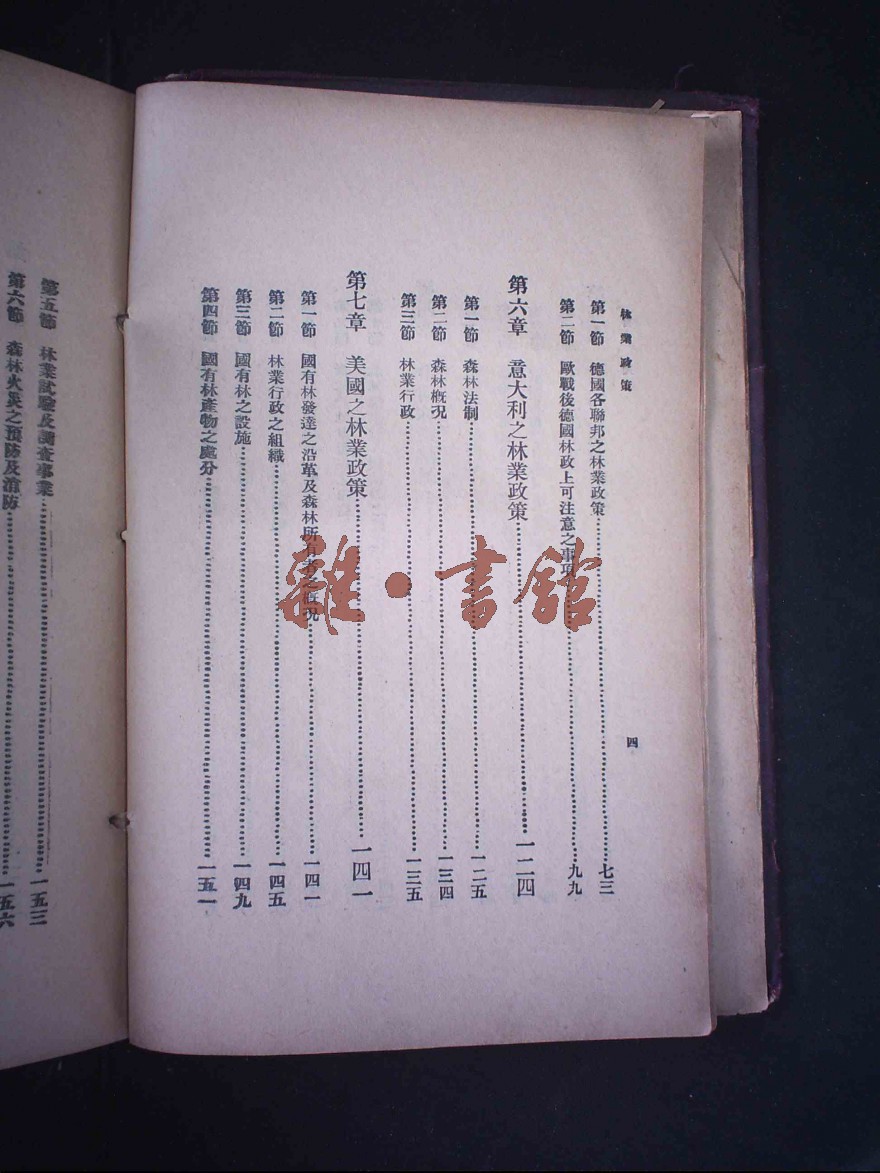 林業政策
四
第一節 德國各聯邦之林業政策……七三
第二節 歐戰後德國林政上可注意之事項……九九
第六章 意大利之林業政策……一二四
第一節 森林法制……一二五
第二節 森林概況……一三四
第三節 林業行政……一三五
第七章 美國之林業政策……一四一
第一節 國有林發達之沿革及森林所有者之概況……一四一
第二節 林業行政之組織……一四五
第三節 國有林之設施……一四九
第四節 國有林產物之處分……一五一
第五節 林業試驗及調查事業……一五三
第六節 森林火災之預防及消防……一五六
雜·書館